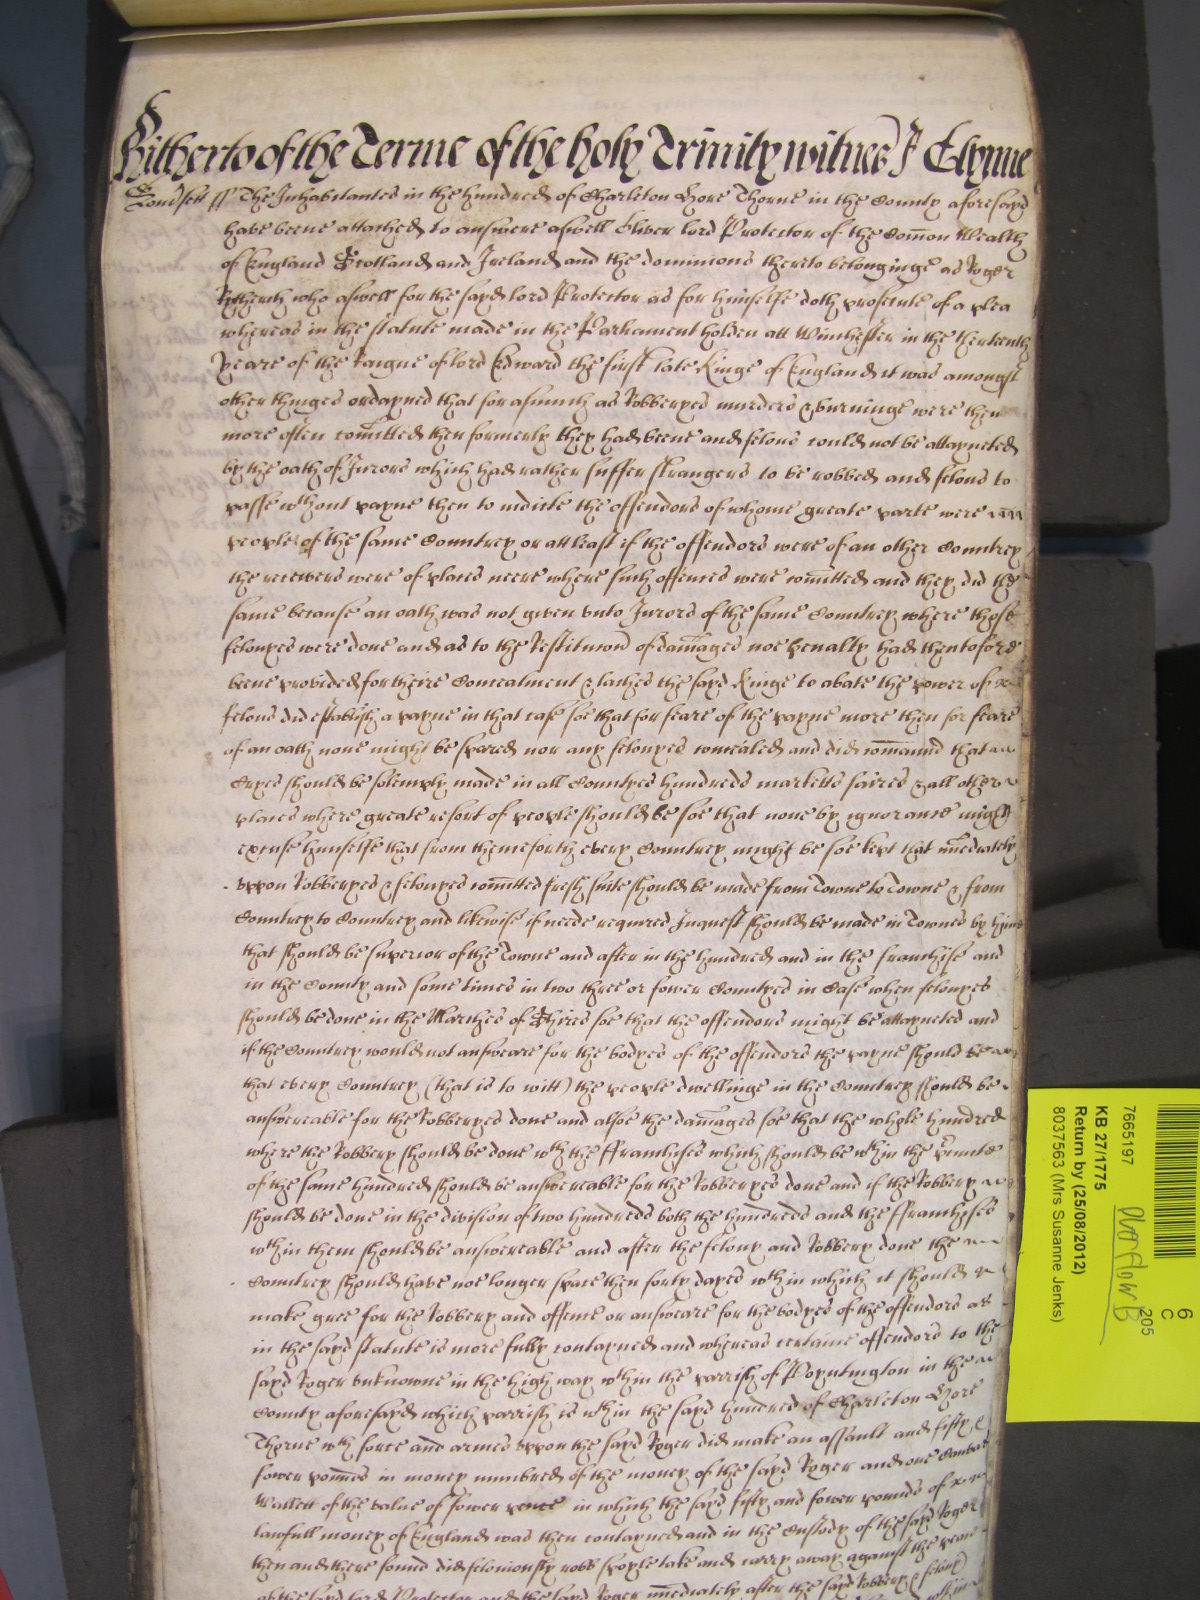 Hitherto of the Terme of the holy Trinity witnes J Glynne
Somsett ss The Inhabitantes in the hundred of Charleton Hore Thorne in the County aforesayd
have beene attached to answere aswell Oliver lord Protector of the Comon Wealth
of England Scotland and Ireland and the dominions thereto belonginge as Roger
who aswell for the sayd lord Protector as for himselfe doth prosecute of a plea
whereas in the statute made in the Parliament holden att Winchester in the therteenth
yeare of the Raigne of lord Edward the first late Kinge of England it was amongst
other thinges ordayned that for asmuch as Robberyes murders & burninge were then
more often comitted then formerly they had beene and felons could not be attaynted
by the oath of Jurors which had rather suffer strangers to be robbed and felons to
passe wthout payne then to indicte the offendors of whome greate parte were
people of the same Countrey or att least if the offendors were of an other Countrey
the receivers were of places neere where such offences were comitted and they did the
same because an oath was not given unto Jurors of the same Countrey where those
felonyes were done and as to the Restitucion of damages noe penalty had thentofore
beene provided for theire Concealment & laches the sayd Kinge to abate the power of
felons did establish a payne in that case soe that for feare of the payne more then for feare
of an oath none might be spared nor any felonyes concealed and did comaund that
Cryes should be solemply made in all Countyes hundreds marketts faires & all other
places where greate resort of people should be soe that none by ignorance might
excuse himselfe that from thenceforth every Countrey might be soe kept that imediately
uppon Robberyes & felonyes comitted fresh suite should be made from Towne to Towne & from
Countrey to Countrey and likewise if neede required Inquest should be made in Townes by hym
that should be superior of the Towne and after in the hundred and in the franchise and
in the County and some times in two three or fower Countyes in Case when felonyes
should be done in the Marches of Shires soe that the offendors might be attaynted and
if the Countrey would not answeare for the bodyes of the offendors the payne should be
that every Countrey (that is to witt) the people dwellinge in the Countrey should be
answereable for the Robberyes done and alsoe the damages soe that the whole hundred
where the Robbery should be done wth the ffranchises which should be wthin the
of the same hundred should be answereable for the Robberyes done and if the Robbery
should be done in the division of two hundreds both the hundreds and the ffranchises
wthin them should be answereable and after the felony and Robbery done the
Countrey should have noe longer space then forty dayes wthin which it should
make gree for the Robbery and offence or answeare for the bodyes of the offendors as
in the sayd statute is more fully contayned and whereas certaine offendors to the
sayd Roger unknowne in the high way wthin the parrish of Poyntington in the
County aforesayd which parrish is wthin the sayd hundred of Charleton Hore
Thorne wth force and armes uppon the sayd Roger did make an assault and fifty &
fower pounds in money numbred of the money of the sayd Roger and one Canvas
Wallett of the value of fower pence in which the sayd fifty and fower pounds of
lawfull money of England was then contayned and in the Custody of the sayd Roger
then and there found did feloniously robb spoyle take and carry away against the peace
of the sayd lord Protector and the sayd Roger imediately after the sayd Robbery & felony
7665197
KB 27/1775
Return by (25/08/2012)
8037563 (Mrs Susanne Jenks)
Overflow B
205
6
C